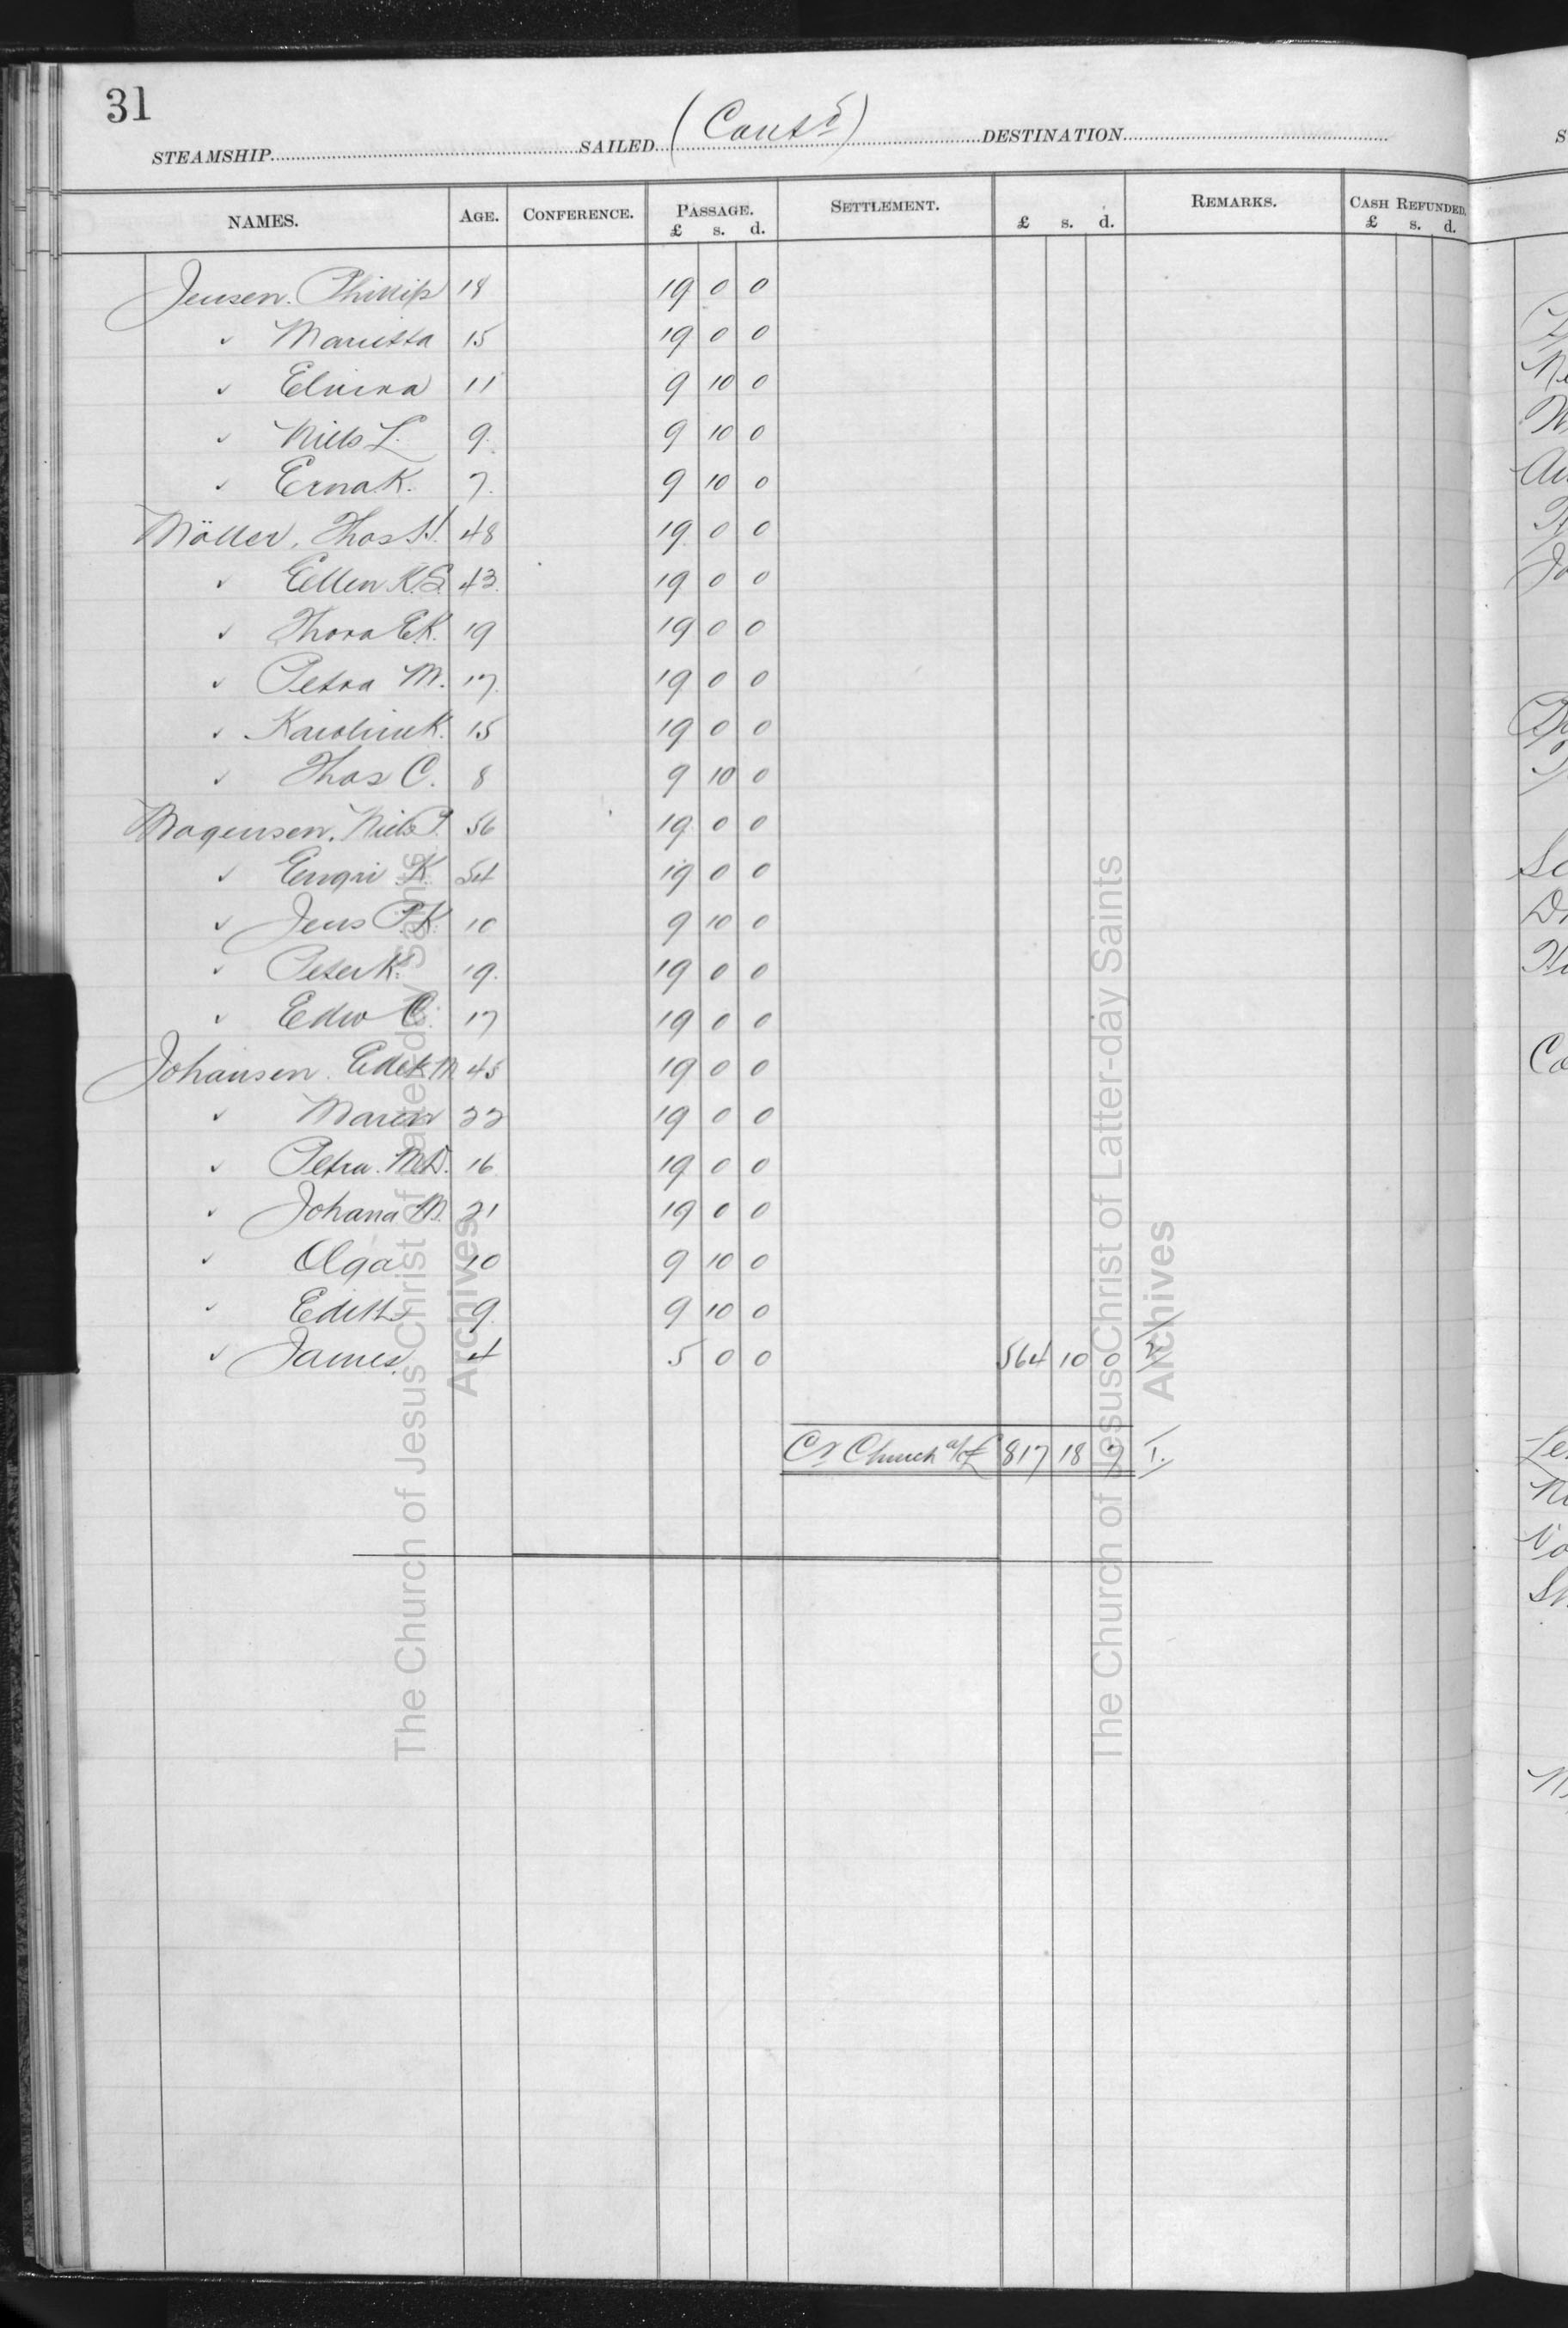 31
(Contd)
STEAMSHIP SAILED DESTINATION
NAMES. AGE. CONFERENCE. PASSAGE. SETTLEMENT. REMARKS. CASH REFUNDED.
£ s. d. £ s. d. £ s. d.
Jensen. Phillip 18 19 0 0
" Marietta 15 19 0 0
" Elvira 11 9 10 0
" Niels L. 9. 9 10 0
" Erna K. 7. 9 10 0
Möller, Thos H. 48 19 0 0
" Ellen K.S. 43. 19 0 0
" Thora E.K. 19 19 0 0
" Petra M. 17. 19 0 0
" Karoline K. 15 19 0 0
" Thos C. 8 9 10 0
Mogensen. Niels P. 56 19 0 0
" K. 54 19 0 0
" Jens P.K. 10 9 10 0
" Peter K. 19. 19 0 0
" Edw C. 17 19 0 0
Johansen. M 45 19 0 0
" Maren 22 19 0 0
" Petra. M.D. 16 19 0 0
" Johana M. 21 19 0 0
" Olga 10 9 10 0
" Edith 9. 9 10 0
" James. 4 5 0 0 564 10 0
Cr Church a/c £ 817 18 7 I.
The Church of Jesus Christ of Latter-day Saints
Archives
The Church of Jesus Christ of Latter-day Saints
Archives